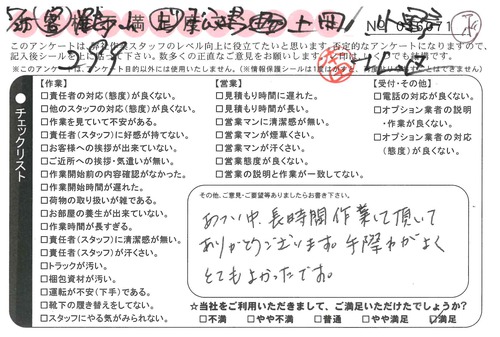 このアンケートは、弊社スタッフのレベル向上に役立てたいと思います。否定的なアンケートになりますので、
チェックリスト
【作業】
□責任者の対応(態度)が良くない。
□他のスタッフの対応(態度)が良くない。
□作業を見ていて不安がある。
□責任者(スタッフ)に好感が持てない。
□お客様への挨拶が出来ていない。
□ご近所への挨拶・気遣いが無い。
□作業開始前の内容確認がなかった。
□作業開始時間が遅れた。
□荷物の取り扱いが雑である。
□お部屋の養生が出来ていない。
□作業時間が長すぎる。
□責任者(スタッフ)に清潔感が無い。
□責任者(スタッフ)が汗くさい。
□トラックが汚い。
□梱包資材が汚い。
□運転が不安(下手)である。
□靴下の履き替えをしてない。
□スタッフにやる気がみられない。
【営業】
□見積もり時間に遅れた。
□見積もり時間が長い。
□営業マンに清潔感が無い。
□営業マンが煙草くさい。
□営業マンが汗くさい。
□営業態度が良くない。
□営業の説明と作業が一致してない。
【受付・その他】
□電話の対応が良くない。
□オプション業者の説明
・作業が良くない。
□オプション業者の対応
(態度)が良くない。
その他、ご意見・ご要望等ありましたらお書き下さい。
あつい中、長時間作業して頂いて
ありがとうございます。手際がよく
とてもよかったです。
☆当社をご利用いただきまして、ご満足いただけたでしょうか?
□不満 □やや不満 □普通 □やや満足 ☑満足